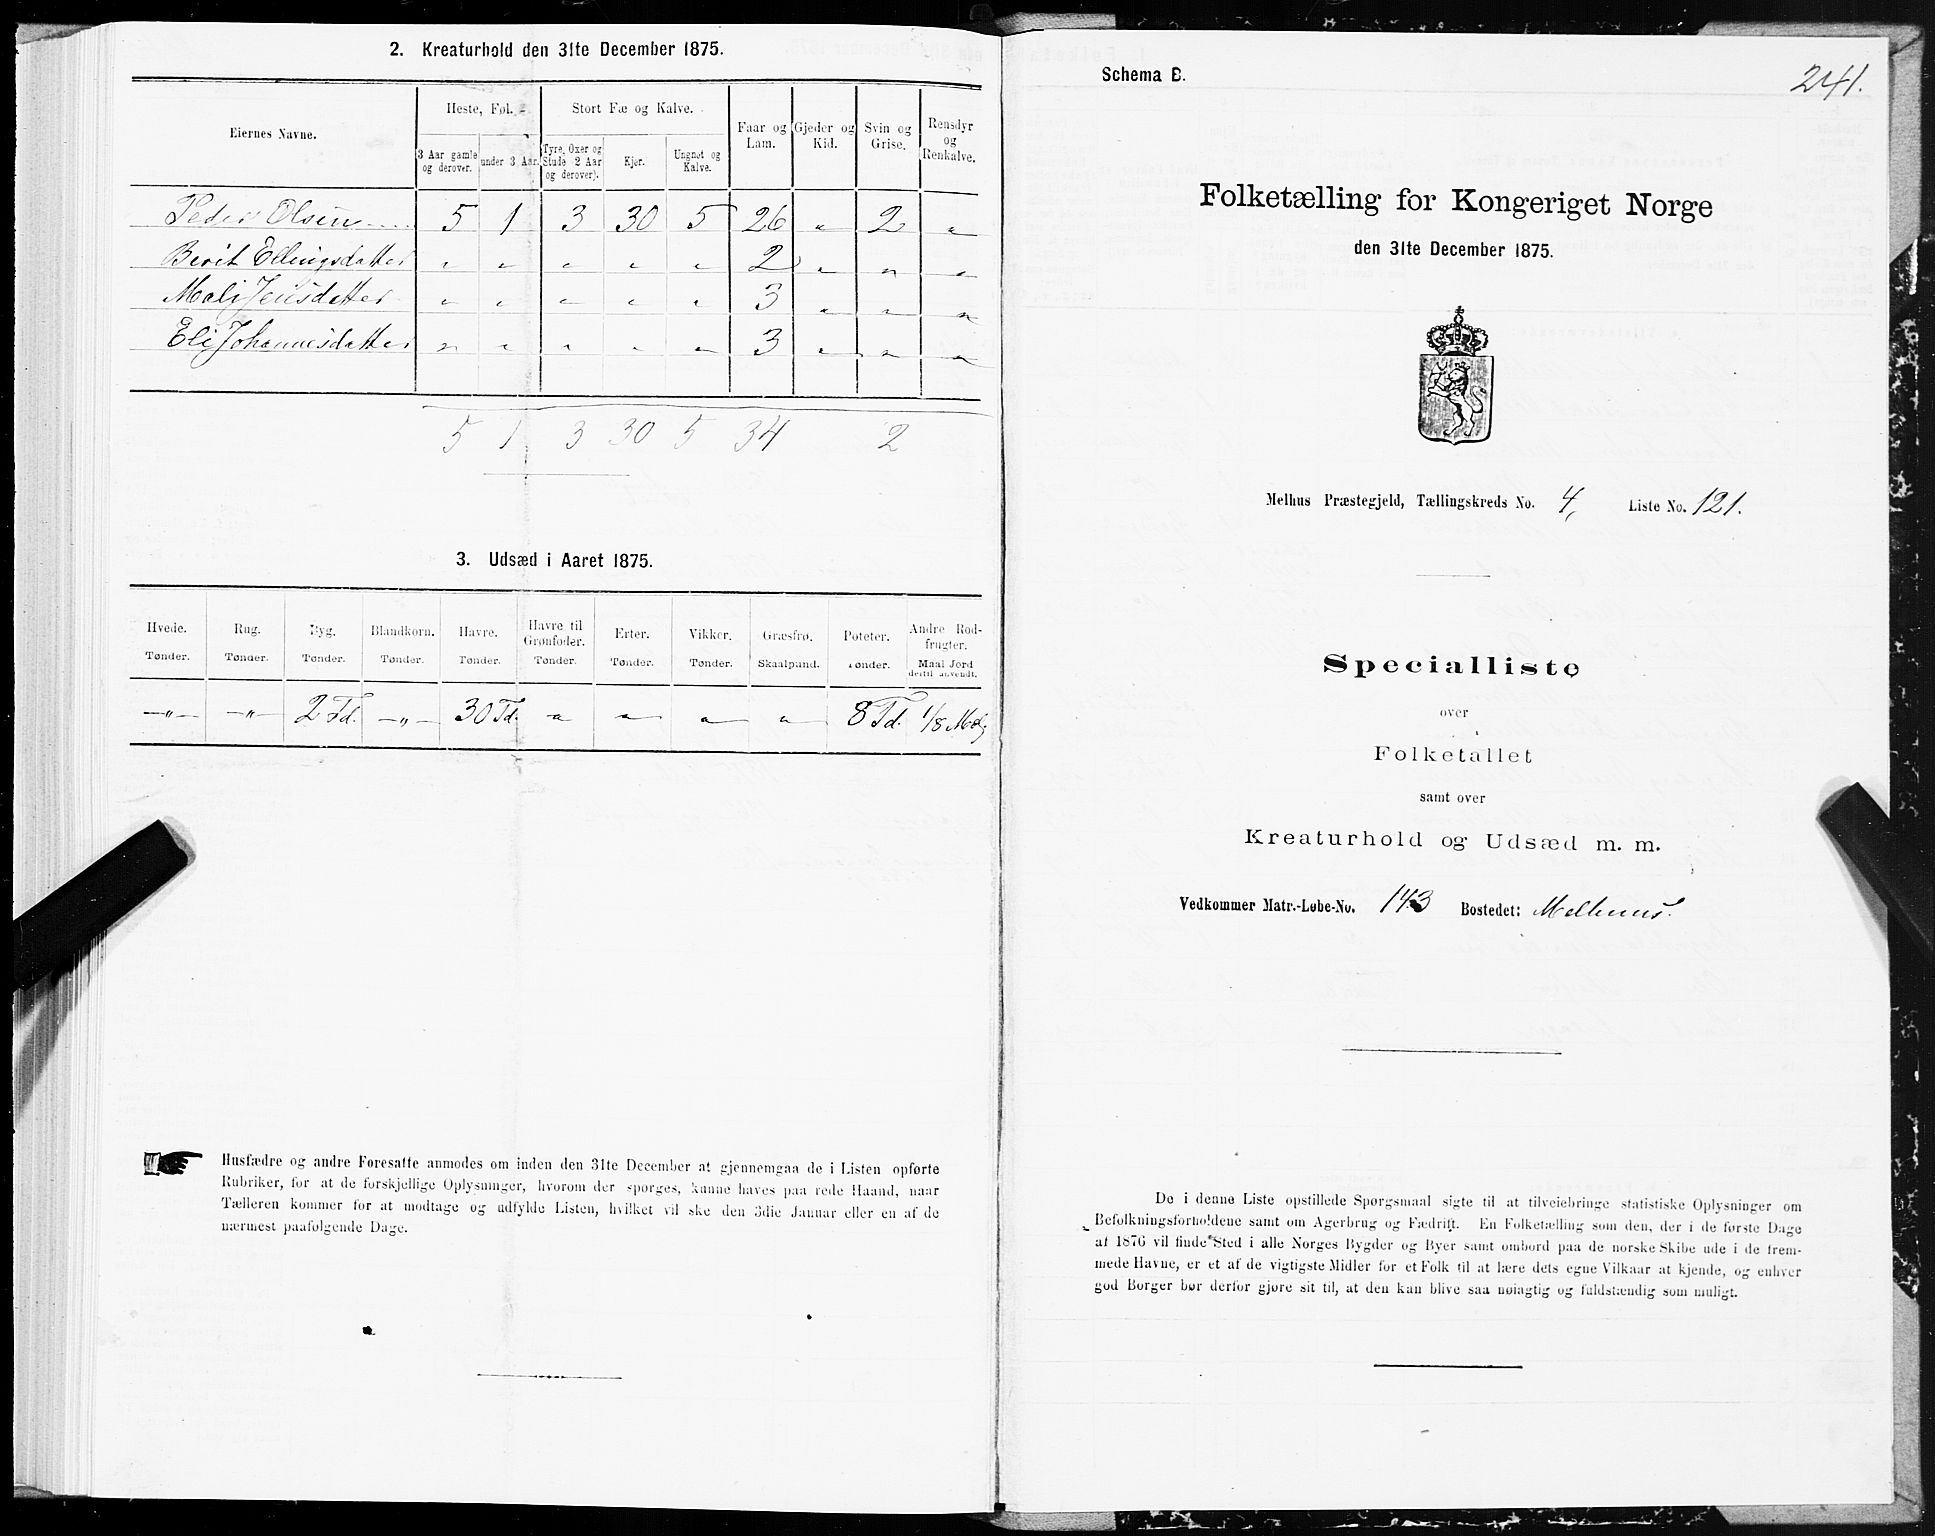 2. Kreaturhold den 31te December 1875.
Eiernes Navne.
Heste, Føl.
Stort Fæ og Kalve.
Faar og Lam.
Gjeder og Kid.
Svin og Grise.
Rensdyr og Renkalve.
3 Aar gamle og derover.
under 3 Aar.
Tyre, Oxer og Stude (2 Aar og derover).
Kjør.
Ungnøt og Kalve.
Peder Olsen 5 1 3 30 5 26 " 2 "
Berit Ellingsdatter " " " " " 2 " " "
Mali Jensdatter " " " " " 3 " " "
Eli Johannesdatter " " " " " 3 " " "
5 1 3 30 5 34 2
3. Udsæd i Aaret 1875.
Hvede. Rug. Byg. Blandkorn. Havre. Havre til Grønfoder. Erter. Vikker. Græsfrø. Poteter. Andre Rodfrugter.
Tønder. Tønder. Tønder. Tønder. Tønder. Tønder. Tønder. Tønder. Skaalpund. Tønder. Maal Jord dertil anvendt.
—"— —"— 2 Td. —"— 30 Td. " " " " 8 Td. 1/8 Mål
Husfædre og andre Foresatte anmodes om inden den 31te December at gjennemgaa de i Listen opførte
Rubriker, for at de forskjellige Oplysninger, hvorom der spørges, kunne haves paa rede Haand, naar
Tælleren kommer for at modtage og udfylde Listen, hvilket vil ske den 3die Januar eller en af de
nærmest paafølgende Dage.
Schema B.
241.
Folketælling for Kongeriget Norge
den 31te December 1875.
Melhus Præstegjeld, Tællingskreds No. 4, Liste No. 121.
Specialliste
over
Folketallet
samt over
Kreaturhold og Udsæd m. m.
Vedkommer Matr.-Løbe-No. 143 Bostedet: Melhuus.
De i denne Liste opstillede Spørgsmaal sigte til at tilveiebringe statistiske Oplysninger om
Befolkningsforholdene samt om Agerbrug og Fædrift. En Folketælling som den, der i de første Dage
af 1876 vil finde Sted i alle Norges Bygder og Byer samt ombord paa de norske Skibe ude i de frem-
mede Havne, er et af de vigtigste Midler for et Folk til at lære dets egne Vilkaar at kjende, og enhver
god Borger bør derfor gjøre sit til, at den kan blive saa nøiagtig og fuldstændig som muligt.